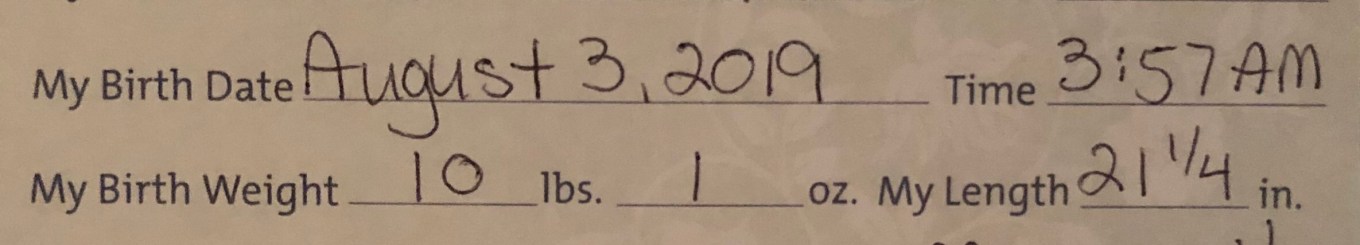 My Birth Date August 3, 2019 Time 3:57 AM
My Birth Weight 10 lbs. 1 oz. My Length 21 1/4 in.